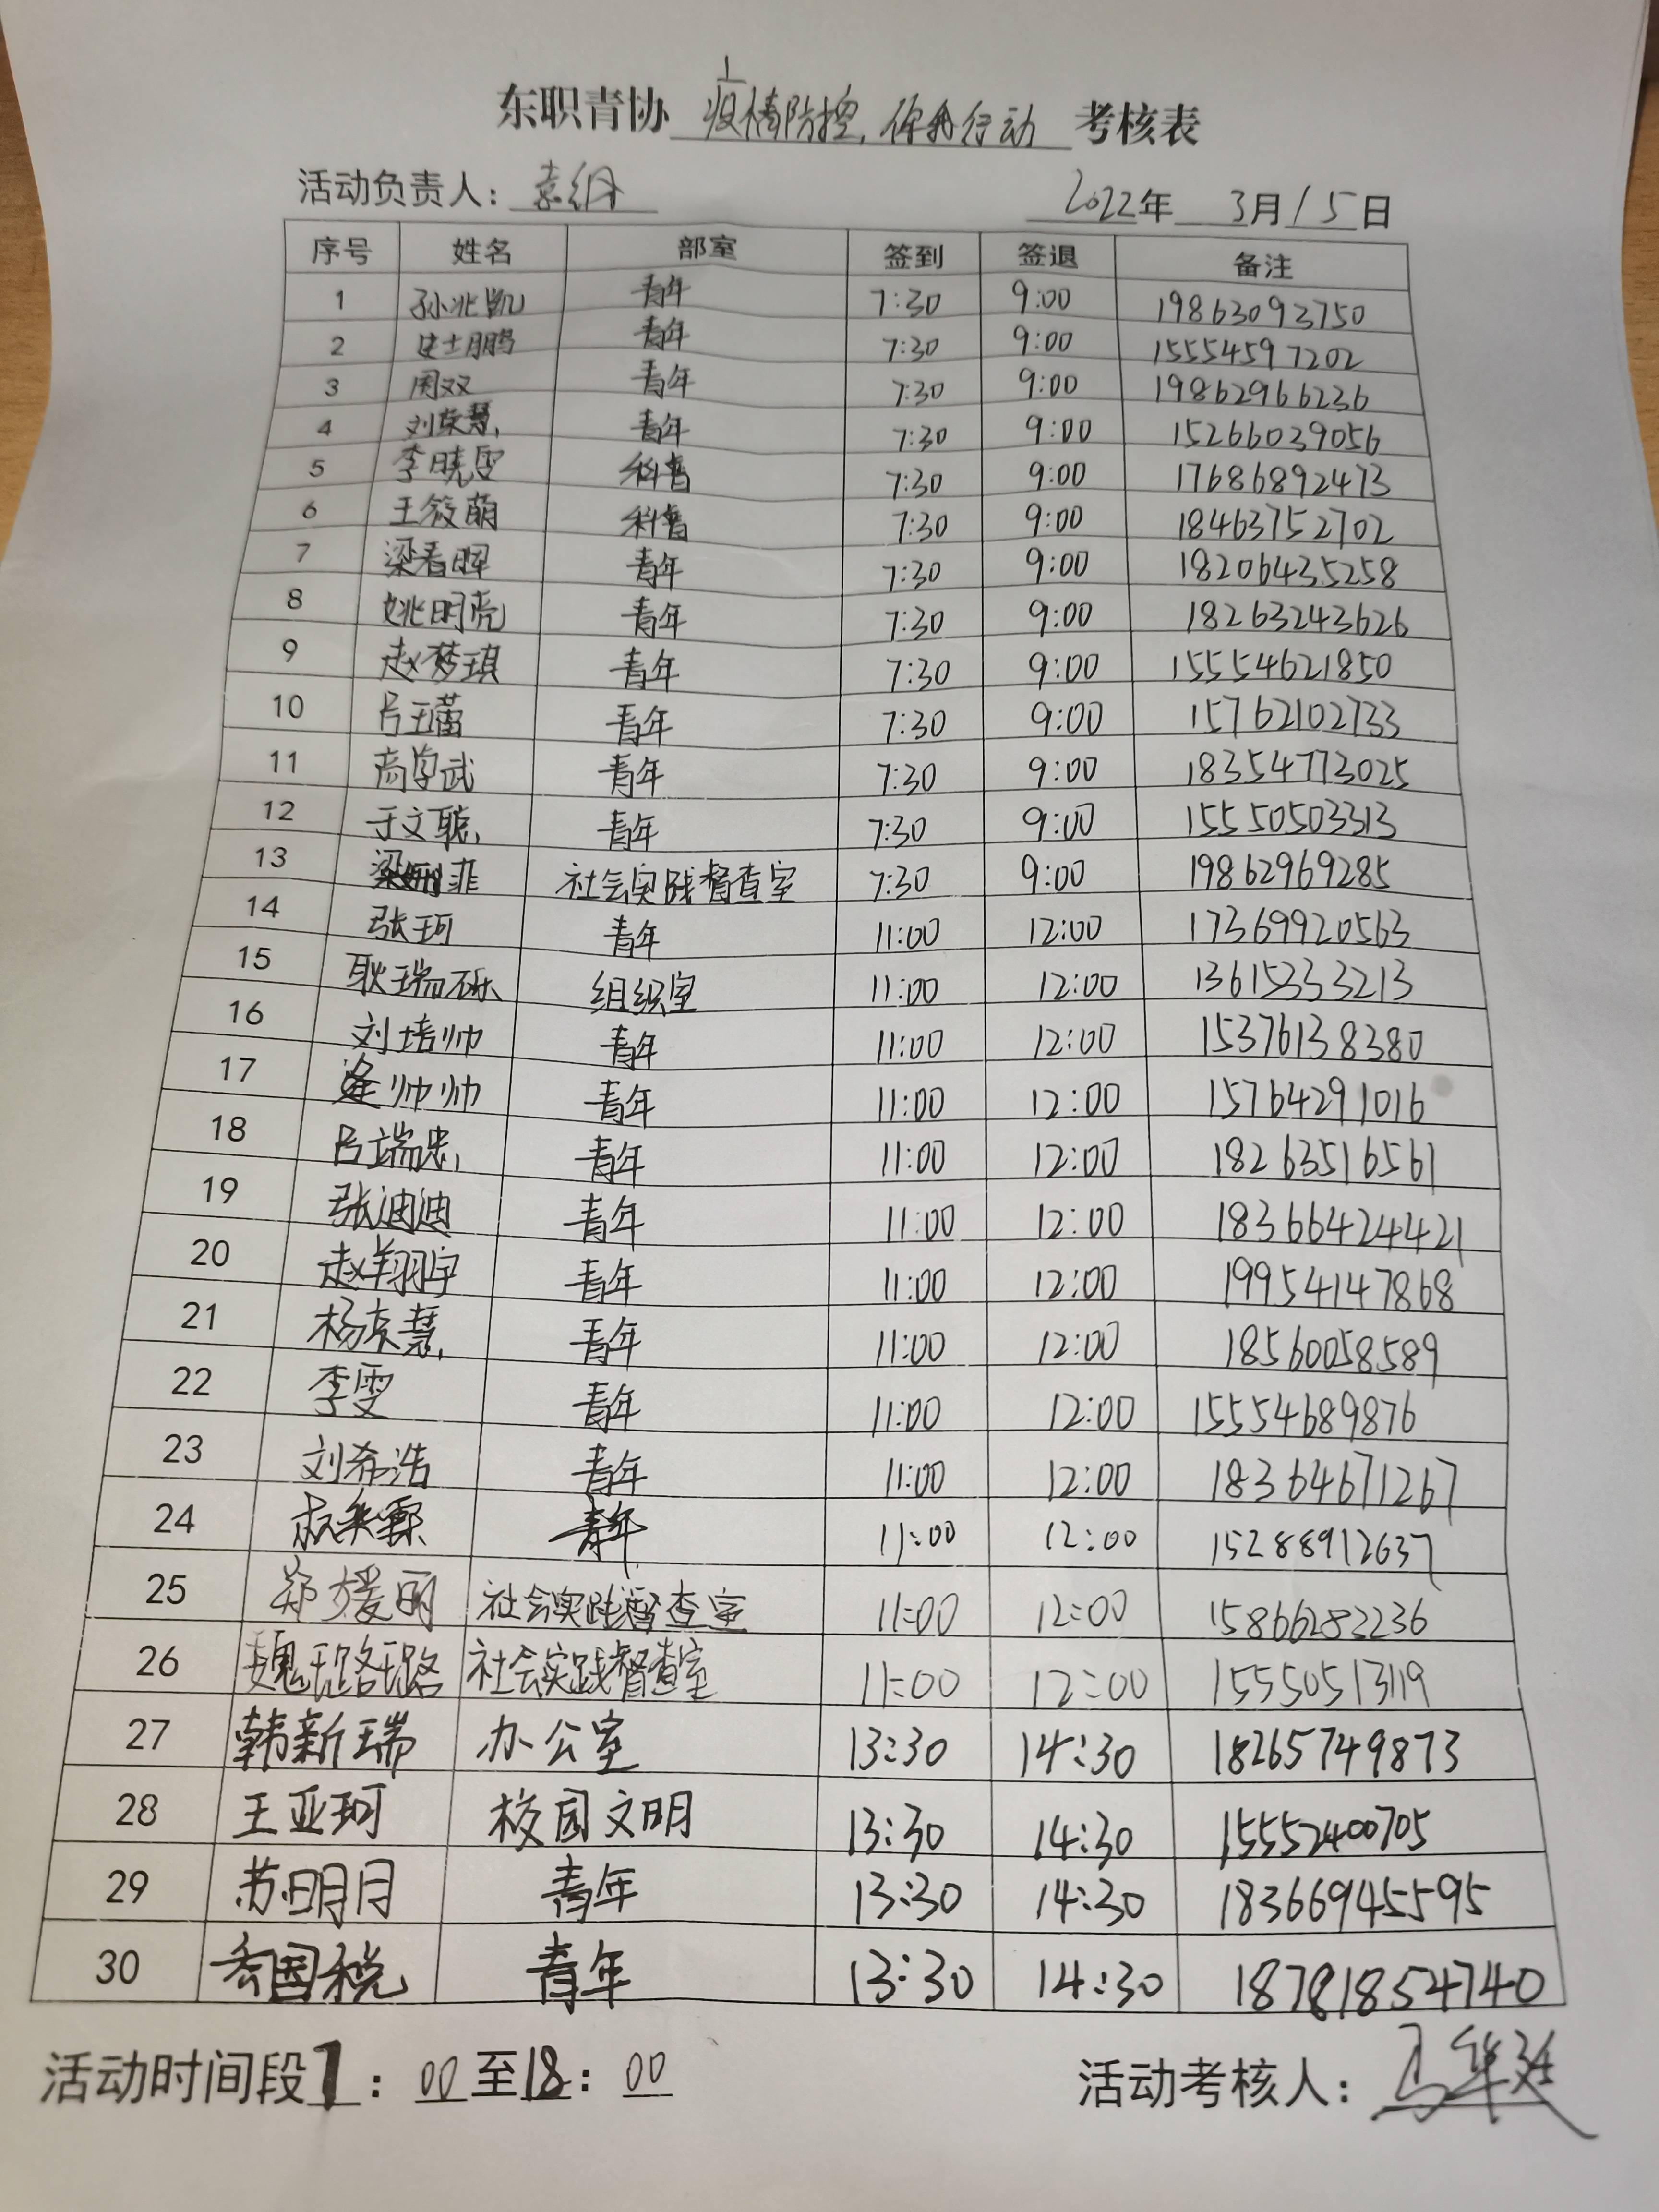 东职青协 疫情防控,你我行动 考核表
活动负责人: 袁绢 2022年 3月15日
序号 姓名 部室 签到 签退 备注
1 孙兆凯 青年 7:30 9:00 19863093750
2 史士鹏 青年 7:30 9:00 15554597202
3 周双 青年 7:30 9:00 19862966236
4 刘东慧 青年 7:30 9:00 15266039056
5 李晓雯 科普 7:30 9:00 17686892473
6 王筱萌 科普 7:30 9:00 18463752702
7 梁春晖 青年 7:30 9:00 18206435258
8 姚明亮 青年 7:30 9:00 18263243626
9 赵梦琪 青年 7:30 9:00 15554621850
10 吕玉蕾 青年 7:30 9:00 15762102733
11 高学武 青年 7:30 9:00 18354773025
12 于文聪 青年 7:30 9:00 15550503313
13 梁珊菲 社会实践督查室 7:30 9:00 19862969285
14 张珂 青年 11:00 12:00 17369920563
15 耿瑞砾 组织室 11:00 12:00 13615333213
16 刘培帅 青年 11:00 12:00 15376138380
17 逄帅帅 青年 11:00 12:00 15764291016
18 吕瑞忠 青年 11:00 12:00 18263516561
19 张迪迪 青年 11:00 12:00 18366424421
20 赵翔宇 青年 11:00 12:00 19954147868
21 杨东慧 青年 11:00 12:00 18560058589
22 李雯 青年 11:00 12:00 15554689876
23 刘希浩 青年 11:00 12:00 18364671267
24 青年 11:00 12:00 15288912637
25 郑媛丽 社会实践督查室 11:00 12:00 15866283236
26 魏璐璐 社会实践督查室 11:00 12:00 15550513119
27 韩新瑞 办公室 13:30 14:30 18265749873
28 王亚珂 校园文明 13:30 14:30 15552400705
29 苏明月 青年 13:30 14:30 18366945595
30 国税 青年 13:30 14:30 18781854740
活动时间段7:00至18:00 活动考核人: